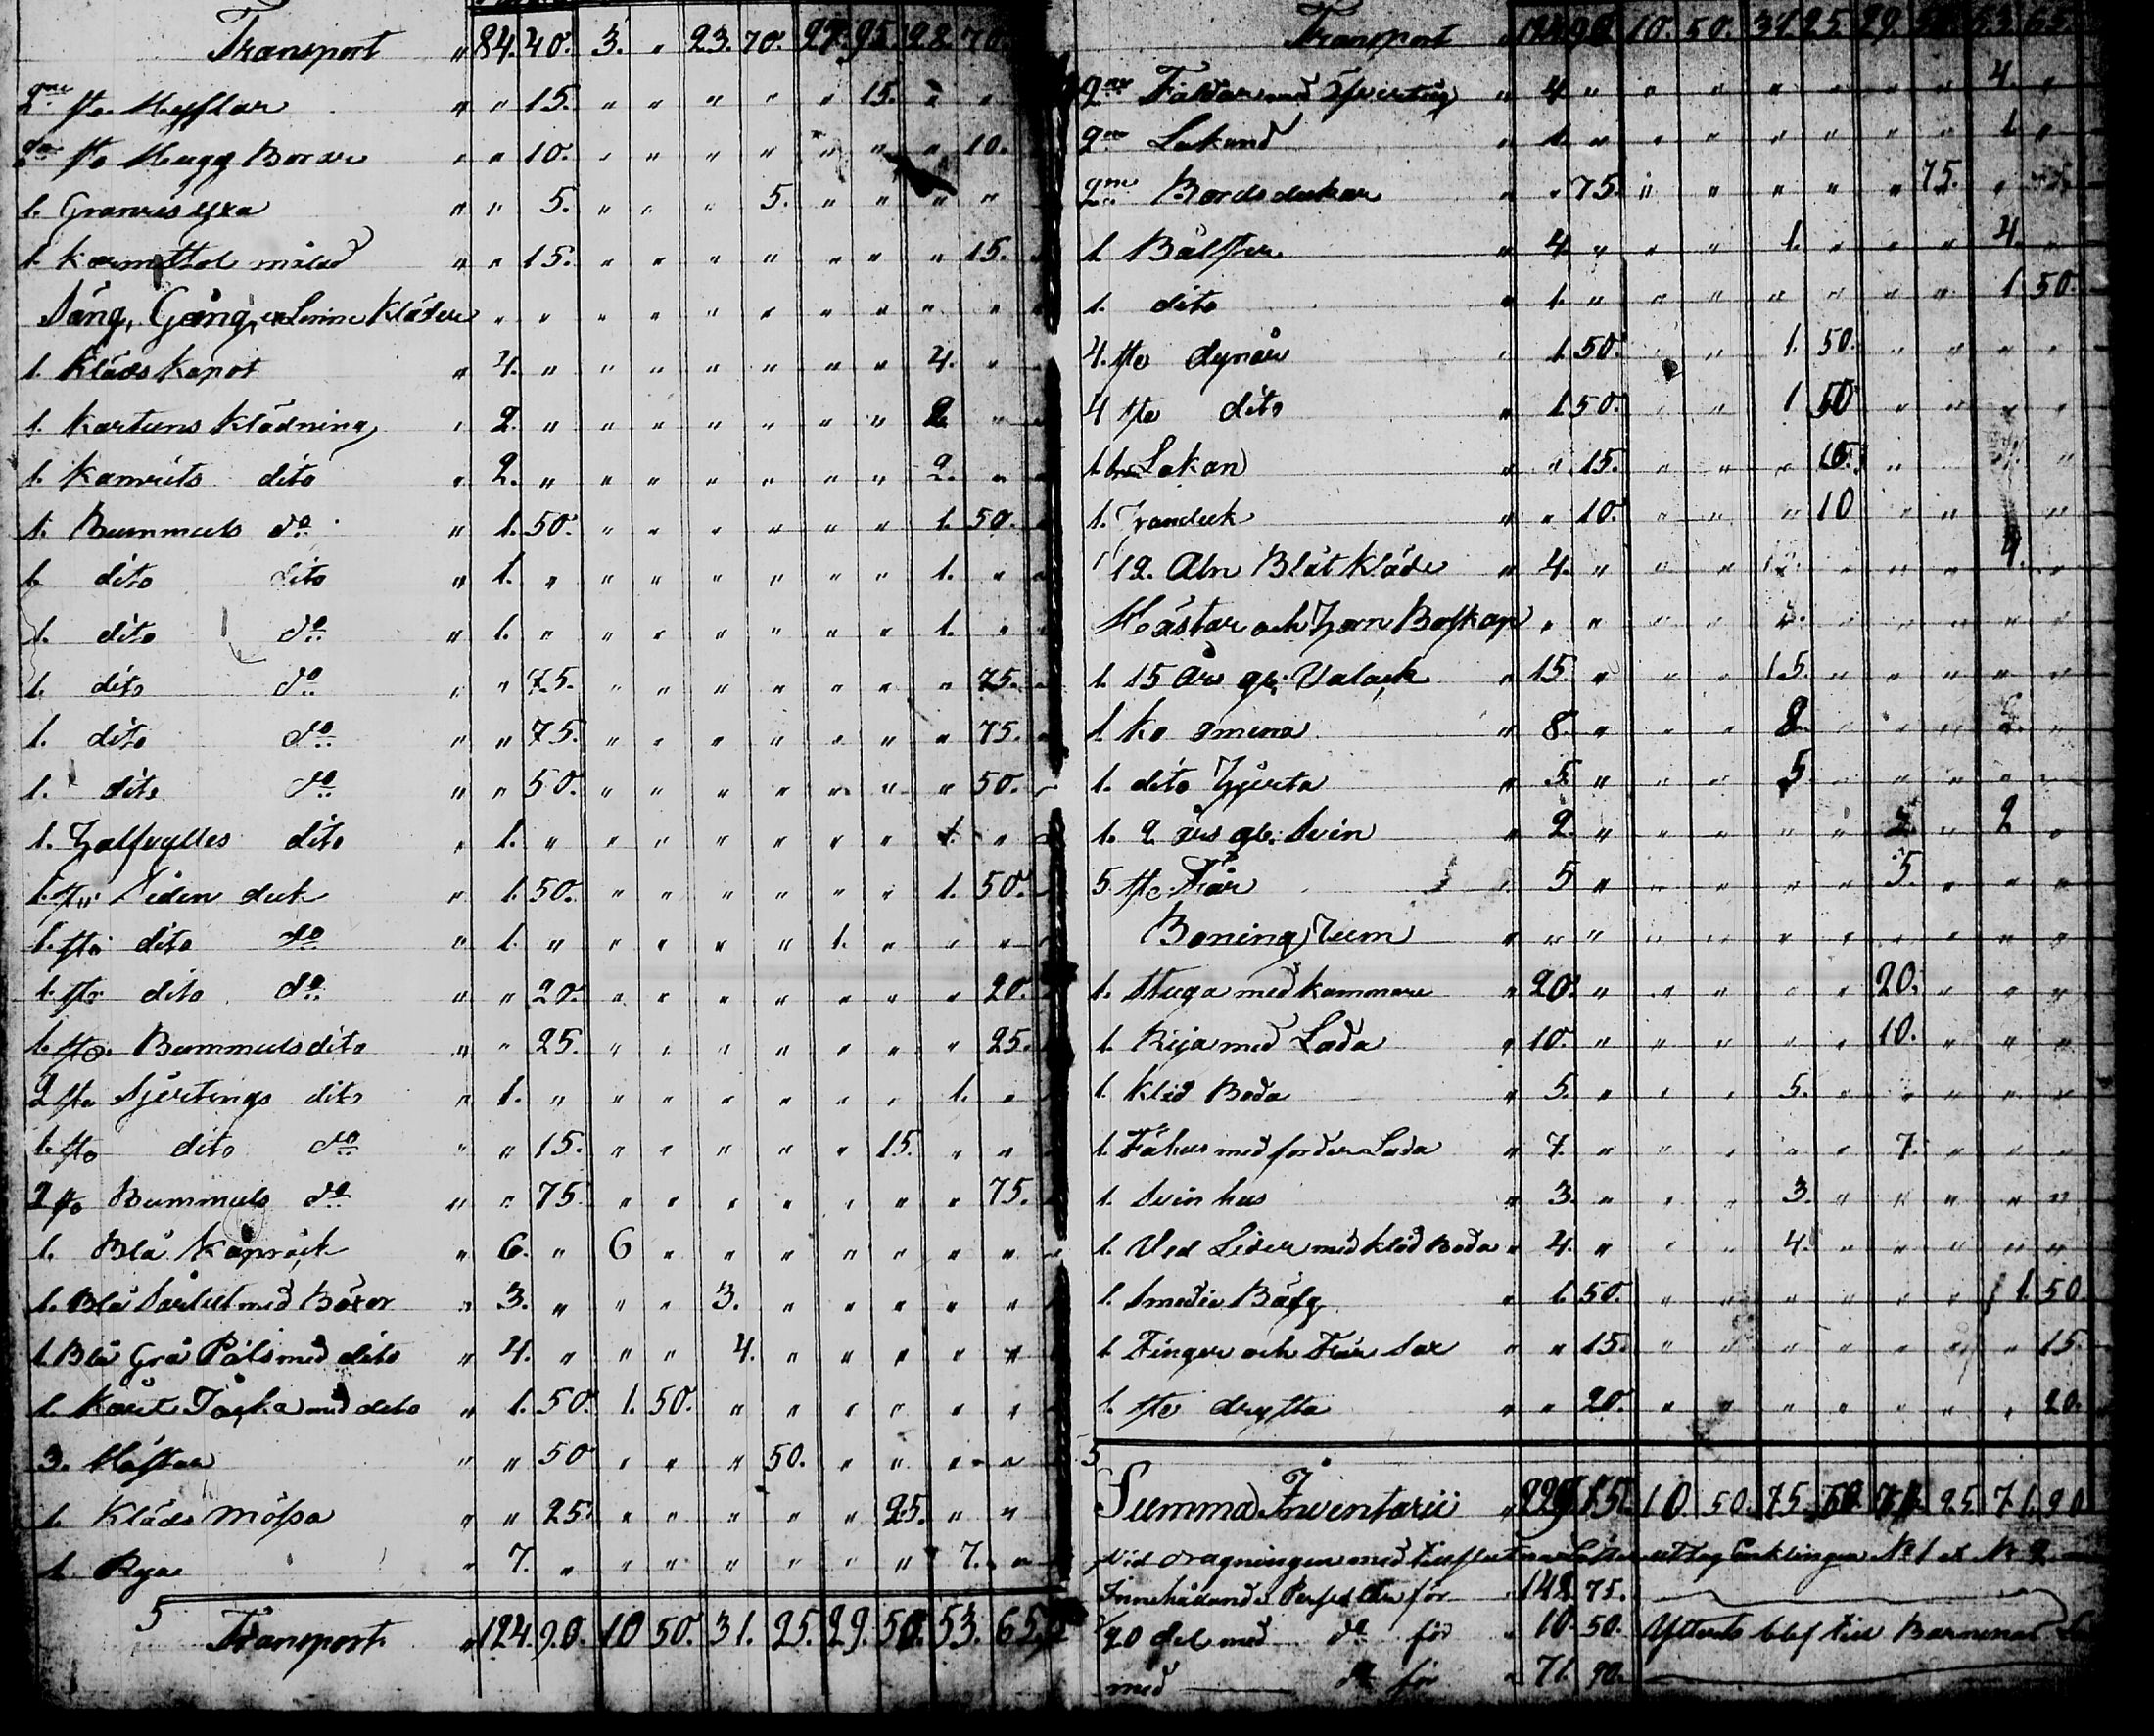 Transport " 84. 40. 3. " 23. 70. 27. 95. 28. 70.
2ne st. Hyflar " " 15. " " " " " 15. " "
2ne st Hugg Borar " " 10. " " " " " " " 10.
1. Granris yxa " " 5. " " " 5. " " " "
1. Karmstol målad " " 15. " " " " " " " 15.
Säng, Gång, o Linne Kläder " " " " " " " " " "
1. Kläds Kapot " 4. " " " " " " " 4. "
1. Kartuns Klädning " 2. " " " " " " " 2 "
1. Kamrits dito " 2. " " " " " " " 2. "
1. Bummuls do " 1. 50. " " " " " " 1. 50.
1. dito dito " 1. " " " " " " " 1. "
1. dito do " 1. " " " " " " " 1. "
1. dito do " " 75. " " " " " " " 75.
1. dito do " " 75. " " " " " " " 75.
1. dito do " " 50. " " " " " " " 50.
1. Halfylles dito " 1. " " " " " " " 1. "
1. st. Siden duk " 1. 50. " " " " " " 1. 50.
1. st. dito do " 1. " " " " " 1. " " "
1. st. dito do " " 20. " " " " " " " 20.
1. st. Bummuls dito " " 25. " " " " " " " 25.
2 st. Sjertings dito " 1. " " " " " " " 1. "
1. st. dito do " " 15. " " " " " 15. " "
2 st. Bummuls do " " 75. " " " " " " " 75.
1. Blå Kapråck " 6. " 6 " " " " " " "
1. Blå Sartut med Böxor " 3. " " " 3. " " " " "
1 Blå Grå Päls med dito " 4. " " " 4. " " " " "
1. Kårt Tåjka med dito " 1. 50. 1. 50. " " " " " "
3. Västar " " 50 " " " 50. " " " "
1. Kläds Mössa " " 25. " " " " " 25. " "
1. Rya " 7. " " " " " " " 7. "
5 Transport " 124. 90. 10 50. 31. 25. 29. 50. 53. 65.
Transport " 124 90 10. 50. 31 25. 29. 50. 53. 65.
2ne " 4 " " " " " " " 4. "
2ne Lakand " 1. " " " " " " " 1. "
2ne Bordsdukar " " 75. " " " " " 75. "
1 Bålster " 4 " " " 1. " " " 4. "
1. dito " 1. " " " " " " " 1 50.
4. st. dynår " 1. 50. " " 1. 50. " " " "
4 st. dito " 1 50. " " 1 50 " " " "
1. Lakan " " 15. " " " 15. "
1. Handuk " " 10. " " " 10 " " "
12. Aln Blåt Kläde " 4. " " " " " " 4. "
Hästar och Horn Boskap " " " " " " " " "
1. 15 Års gl: Valack " 15. " " " 15. " " " " "
1 Ko Omena " 8. " " " 8. " " "
1. dito Hjerta " 5 " " " 5 " " " " "
1. 2 års gl: Svin " 2. " " " " " 2 "
5 st. Får " 5 " " " " " 5. " " "
Boning Rum " " " " " " " " " " "
1. Stuga med Kammare " 20. " " " " " 20. " " "
1. Rija med Lada " 10. " " " " " 10. " " "
1. Kläd Boda " 5. " " " 5. " " " " "
1. Fähus med foder Lada " 7. " " " " " 7. " " "
1. Svin hus " 3. " " " 3. " " " " "
1. Ved Lider med Kläd Boda " 4. " " " 4. " " " " "
1. Smedie Bälg " 1. 50. " " " " " " 1. 50
1. Finger och Får Sax " " 15. " " " " " " " 15.
1. st. drysta " " 20. " " " " " " " 20.
5
Summa Inventarii " 229. 15. 10. 50. 75. 50. 71. 25. 71. 90
Vid dragningen med uttog Enklingen No 1 et No 2
Innehålande Persedlar för " 142. 75.
1/20 del med do för " 10. 50. blef till Barnenas
med do för " 71. 90.